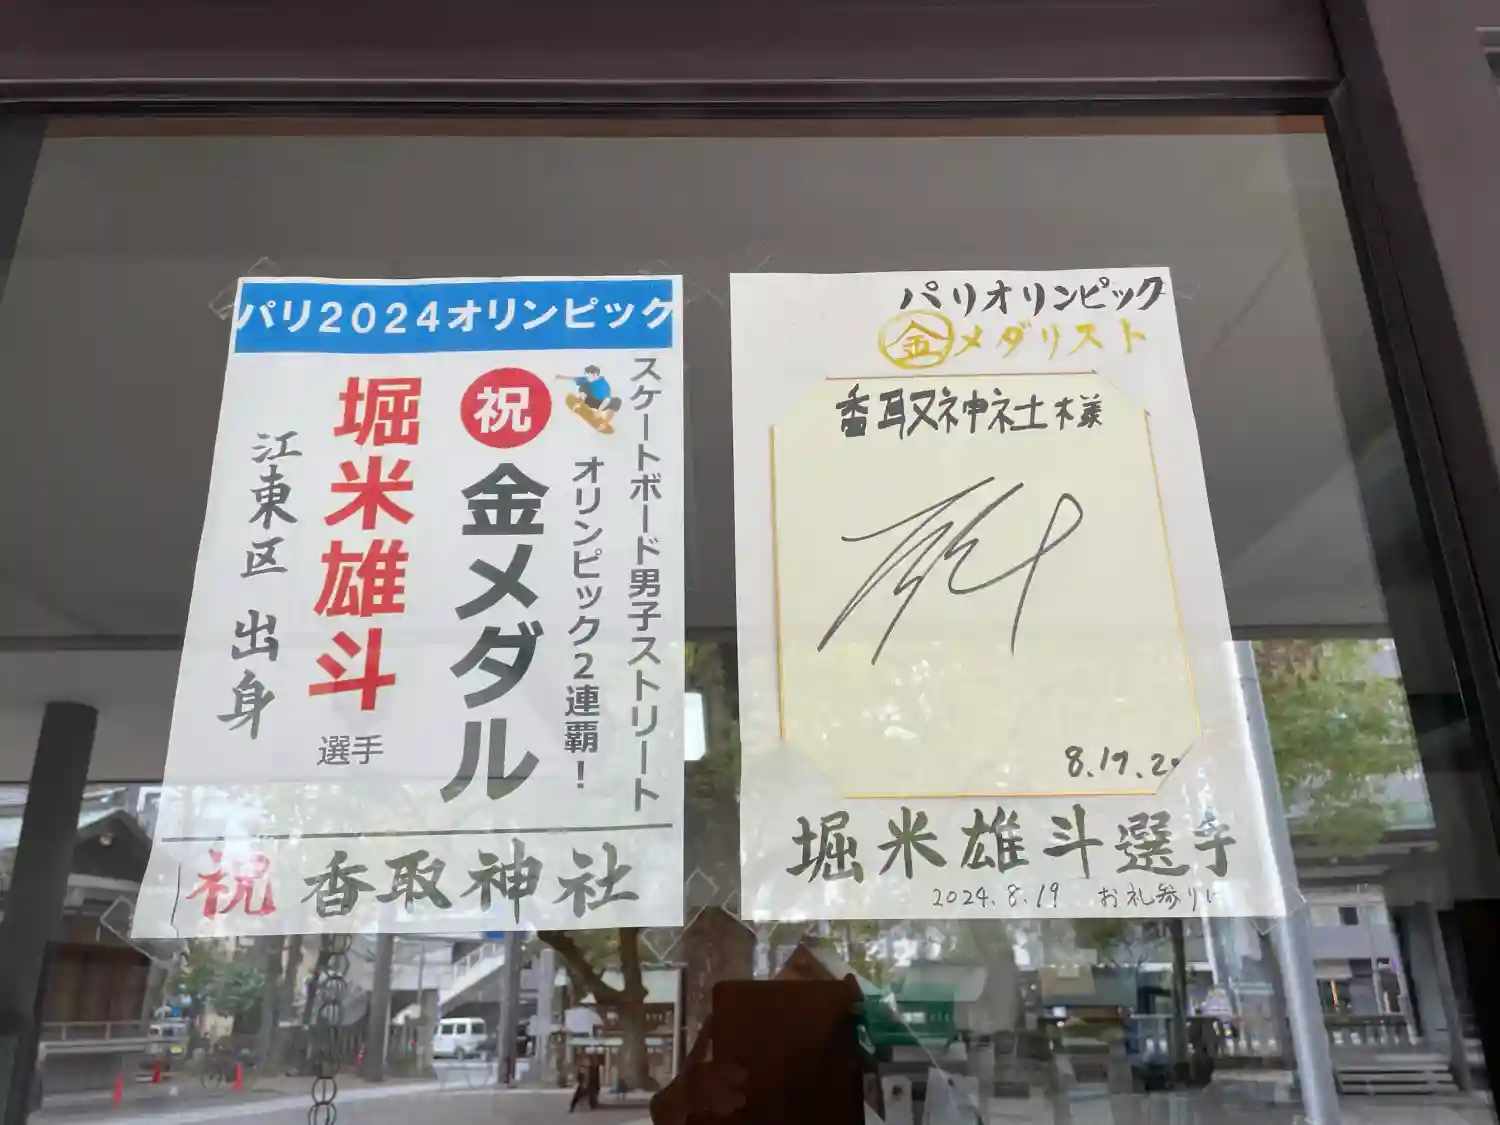 パリ2024オリンピック
スケートボード男子ストリート
オリンピック2連覇!
祝
金メダル
堀米雄斗
選手
江東区 出身
祝 香取神社
パリオリンピック
金メダリスト
香取神社様
8.19.2
堀米雄斗選手
2024.8.19 お礼参りに